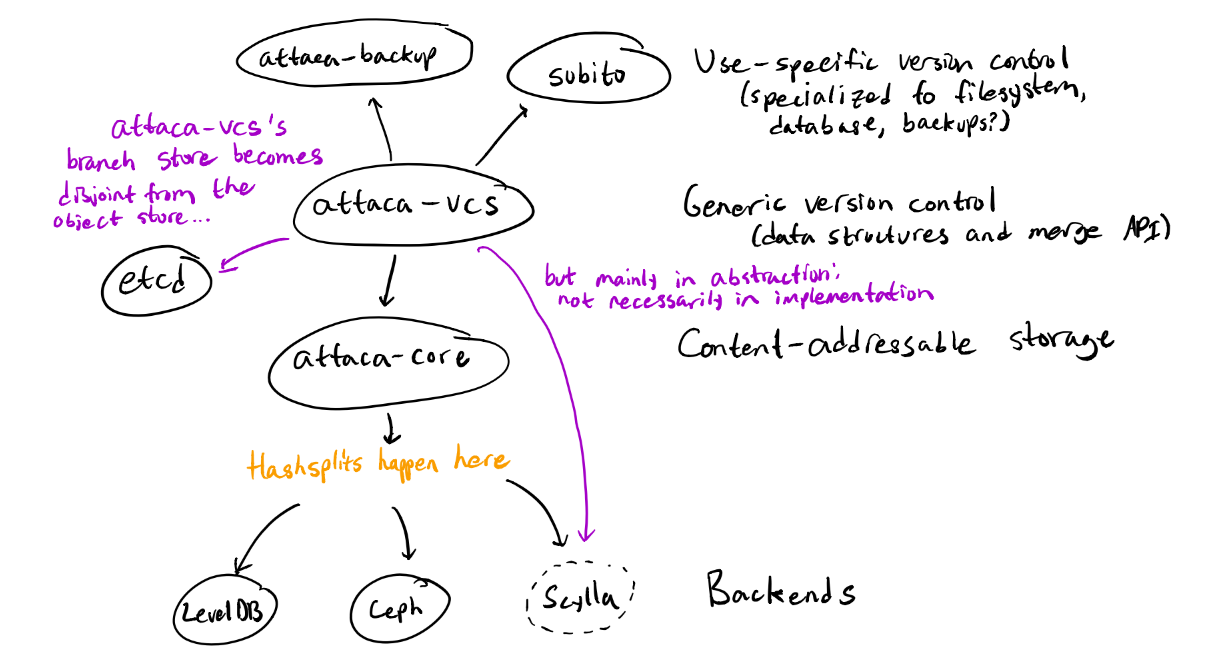 attaca-backup
subito
Use-specific version control
(specialized to filesystem,
database, backups?)
attaca-vcs's
branch store becomes
disjoint from the
object store...
attaca-vcs
Generic version control
(data structures and merge API)
etcd
but mainly in abstraction;
not necessarily in implementation
attaca-core
Content-addressable storage
Hashsplits happen here
LevelDB
Ceph
Scylla
Backends